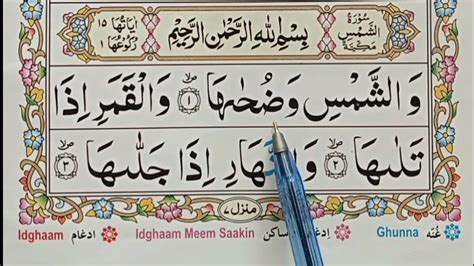 سُورَةُ الشَّمْسِ مَكِّيَّةٌ
بِسْمِ اللّٰهِ الرَّحْمٰنِ الرَّحِيْمِ
اٰيَاتُهَا ١٥ رُكُوْعُهَا ١
وَالشَّمْسِ وَضُحٰىهَا ۪ۙ ١ وَالْقَمَرِ اِذَا
تَلٰىهَا ۪ۙ ٢ وَالنَّهَارِ اِذَا جَلّٰىهَا ۪ۙ ٣
منزل ٧
غُنّه Ghunna ساكن Idghaam Meem Saakin ادغام Idghaam